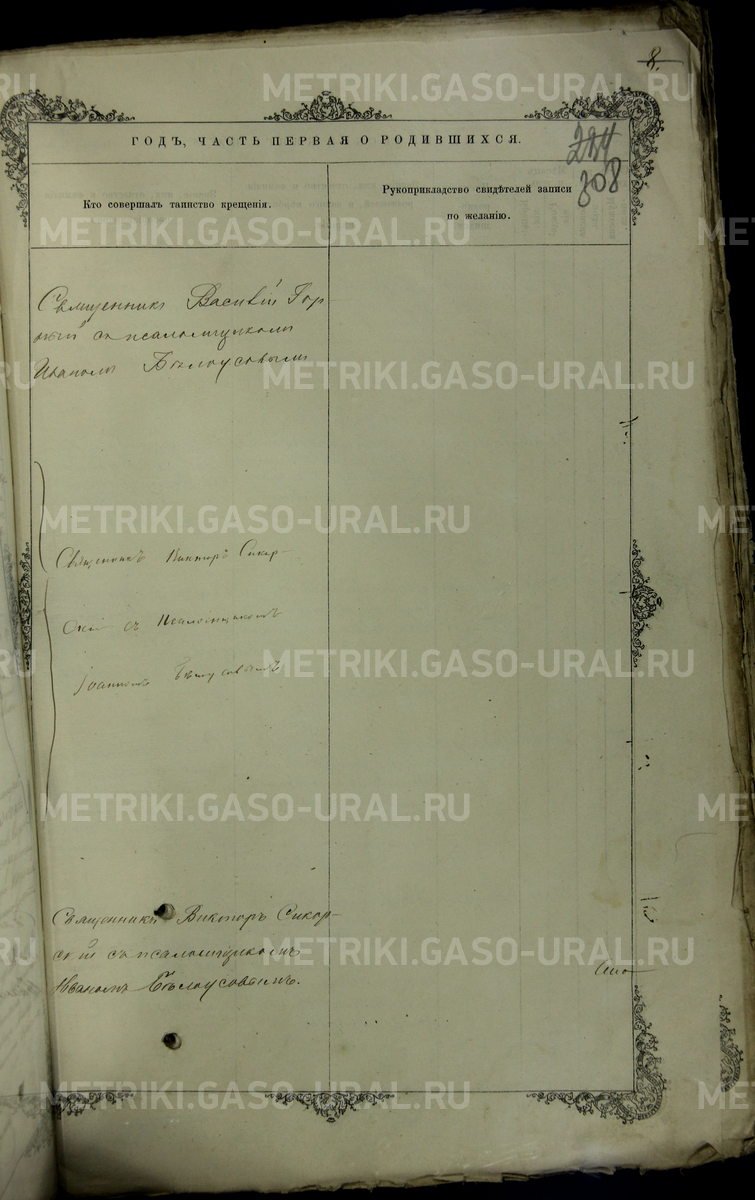 METRIKI.GASO-URAL.RU
8.
ГОДЪ, ЧАСТЬ ПЕРВАЯ О РОДИВШИХСЯ.
308
Кто совершалъ таинство крещенія.
Рукоприкладство свидѣтелей записи
по желанію.
Священникъ Василій Гор
ный съ псаломщикомъ
Иваномъ Бѣлоусовымъ
METRIKI.GASO-URAL.RU
METRIKI.GASO-URAL.RU
METRIKI.GASO-URAL.RU
Священникъ Викторъ Сикор-
скій съ Псаломщикомъ
METRIKI.GASO-URAL.RU
Іоанномъ Бѣлоусовымъ
METRIKI.GASO-URAL.RU
Священникъ Викторъ Сикор-
скій съ псаломщикомъ
METRIKI.GASO-URAL.RU
Иваномъ Бѣлоусовымъ.
METRIKI.GASO-URAL.RU